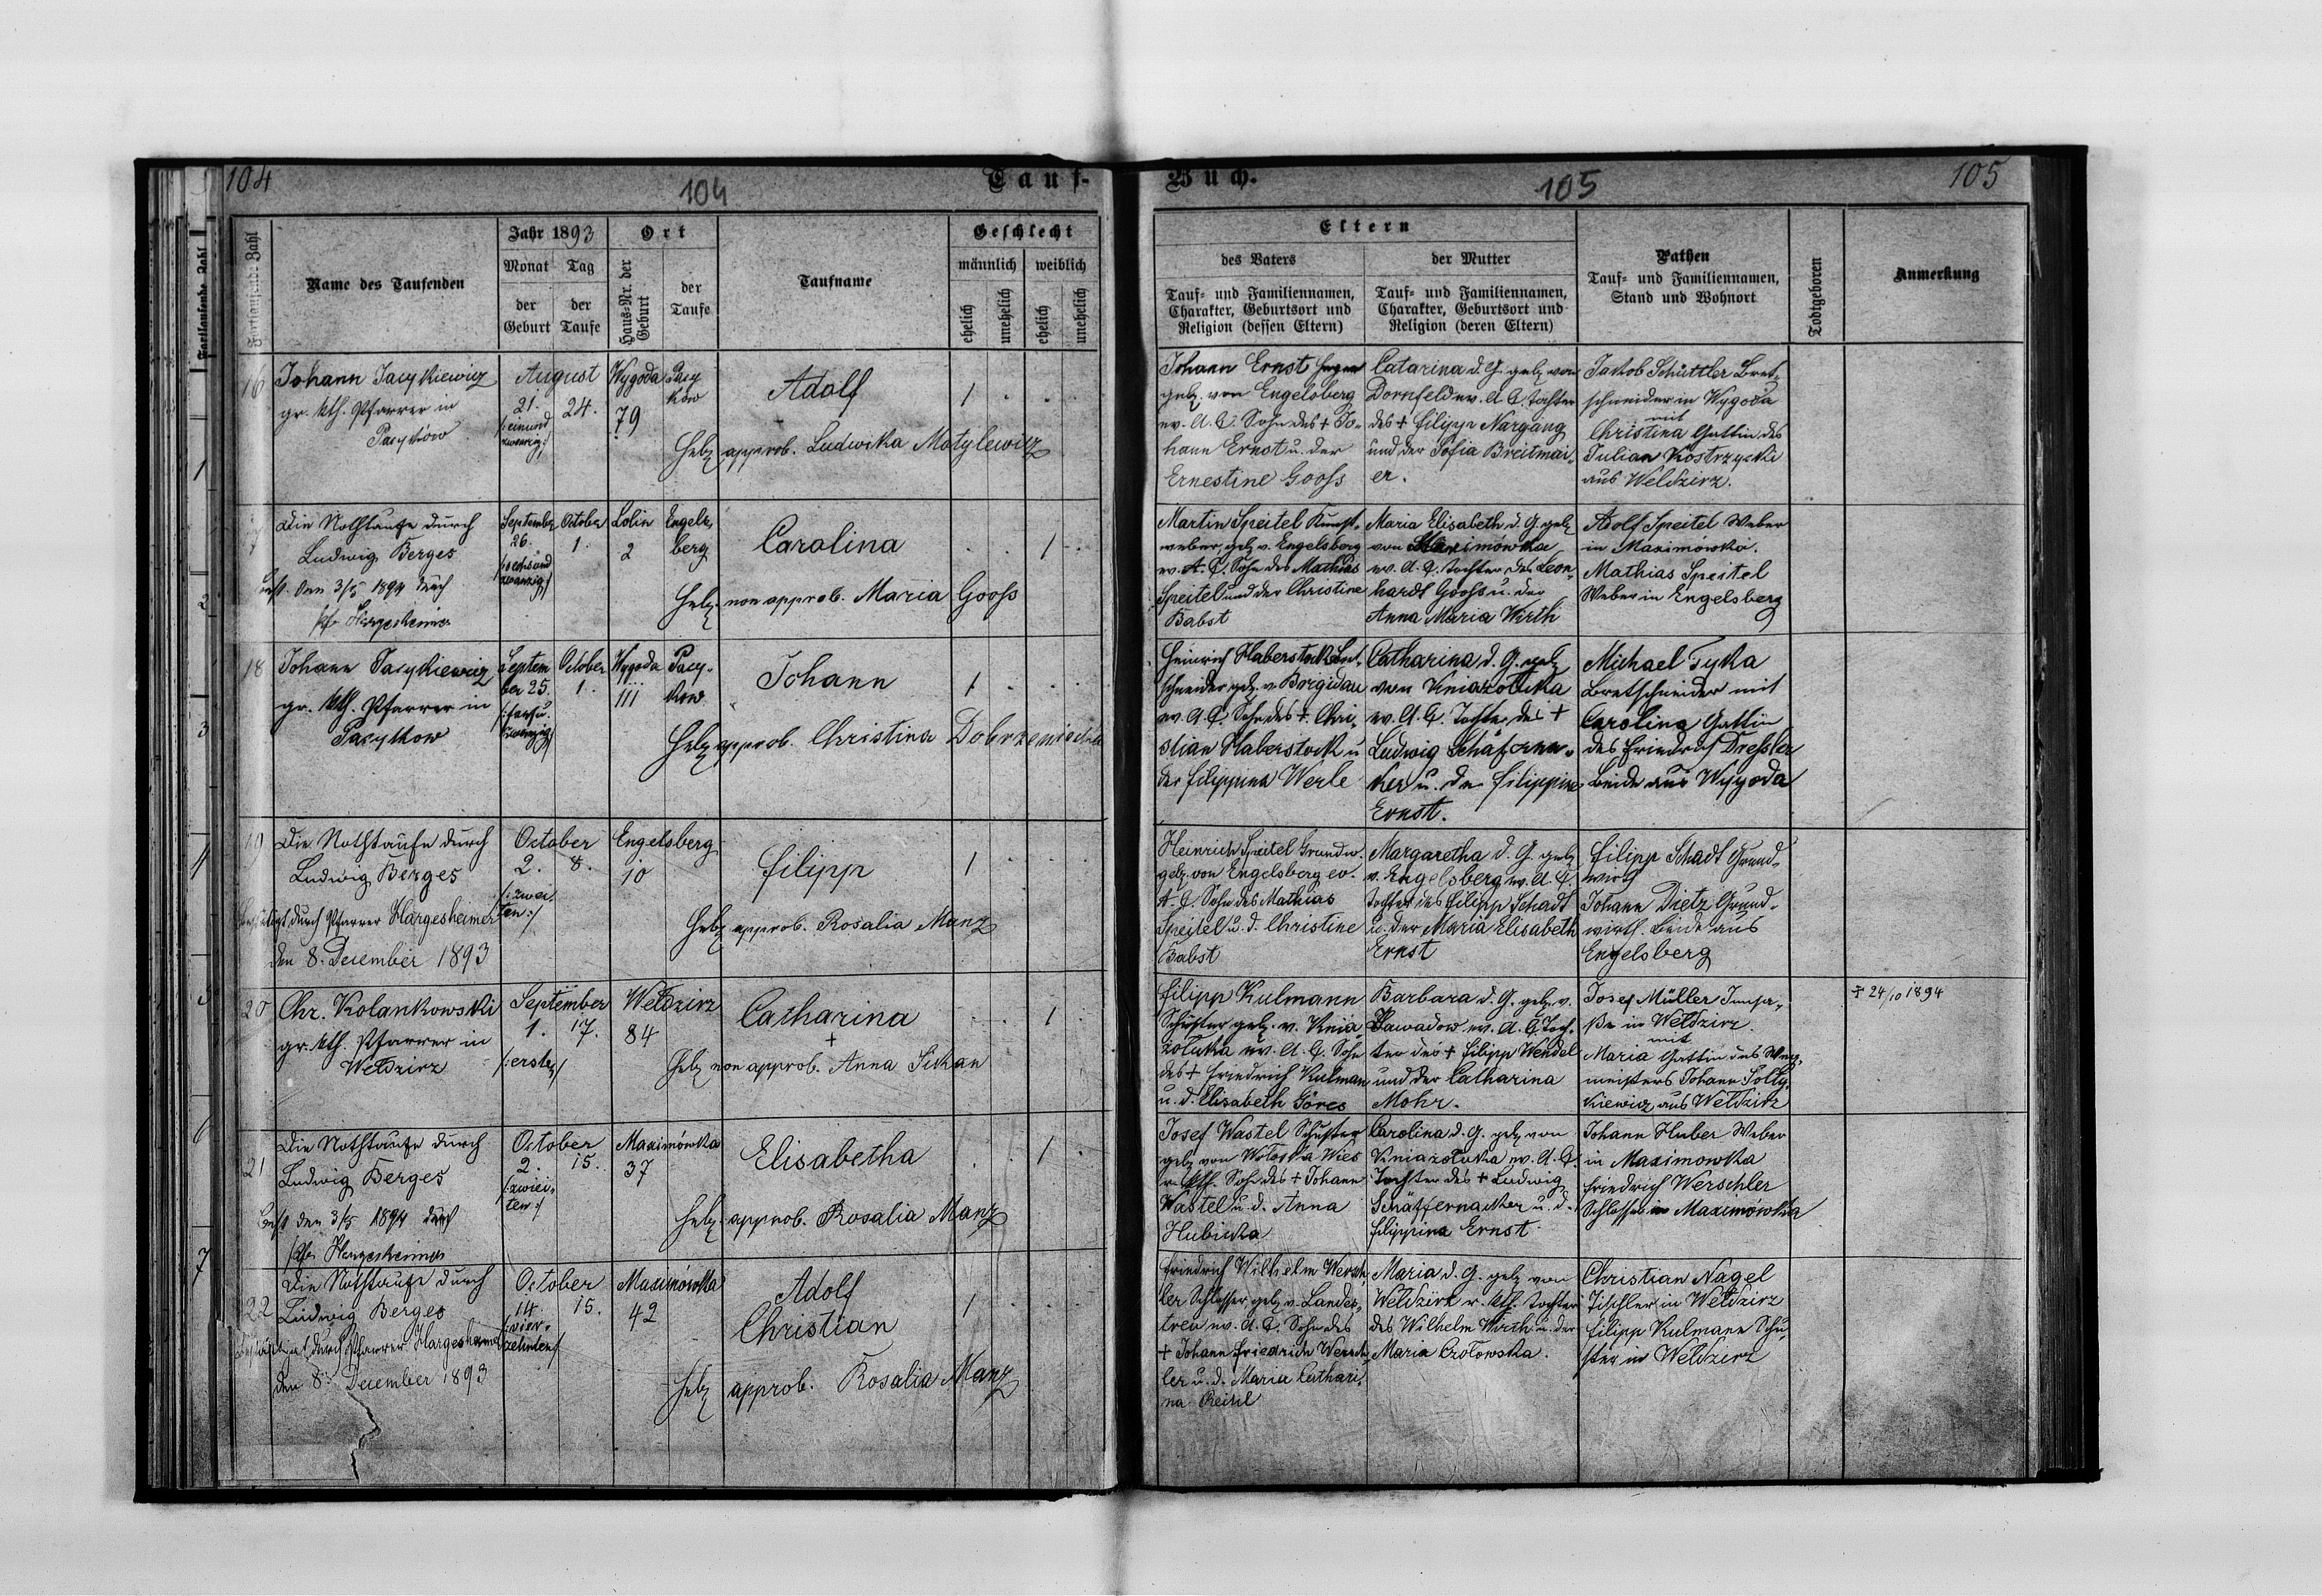 104
104
Tauf-
Fortlaufende Zahl
Name des Taufenden
Jahr 1893
Monat
Tag
der Geburt
der Taufe
Ort
Haus-Nr. der Geburt
der Taufe
Taufname
Geschlecht
männlich
weiblich
ehelich
unehelich
ehelich
unehelich
16
Johann Jasykiewicz
gr. kth. Pfarrer in
Pacyków
August
21.
24.
/:einund
zwanzig:/
Wygoda
79
Pacy
ków
Adolf
1
Heb approb. Ludwika Matylewicz
Die Nothtaufe durch
Ludwig Berges
best. den 3/5 1894 durch
Pfr Hargesheimer
September
26.
/:sechsund
zwanzig:/
October
1.
Lolin
2
Engels
berg
Carolina
1
Heb. non approb. Maria Gooss
18
Johann Jasykiewicz
gr. kth. Pfarrer in
Pacykow
Septem
ber 25.
/:fünfu.
zwanzig:/
October
1.
Wygoda
111
Pacy-
kow
Johann
1
Heb approb. Christina
19
Die Nothtaufe durch
Ludwig Berges
bestätigt durch Pfarrer Hargesheimer
den 8. December 1893
October
2. 8.
/:zwei
ten:/
Engelsberg
10
Filipp
1
Heb approb. Rosalia Manz
20
Chr. Kolankowski
gr. kth. Pfarrer in
Weldzirz
September
1. 17.
/:ersten:/
Weldzirz
84
Catharina
+
1
Heb non approb. Anna Sichan
21
Die Nothtaufe durch
Ludwig Berges
best den 3/5 1894 durch
Pfr Hargesheimer
October
2. 15.
/:zwei-
ten:/
Maximówka
37
Elisabetha
1
Heb. approb. Rosalia Manz
22
Die Nothtaufe durch
Ludwig Berges
bestätigt durch Pfarrer Hargesheimer
den 8. December 1893
October
14. 15.
/:vier-
zehnten:/
Maximówka
42
Adolf
Christian
1
Heb approb. Rosalia Manz
Buch.
105
105
Eltern
des Vaters
Tauf- und Familiennamen,
Charakter, Geburtsort und
Religion (dessen Eltern)
der Mutter
Tauf- und Familiennamen,
Charakter, Geburtsort und
Religion (deren Eltern)
Pathen
Tauf- und Familiennamen,
Stand und Wohnort
Todtgeboren
Anmerkung
Johann Ernst
geb. von Engelsberg
ev. A. C. Sohn des + Jo-
hann Ernst u. der
Ernestine Gooss
Catarina d. G. geb von
Dornfeld ev. A C. Tochter
des + Filipp Nargang
und der Sofia Breitmai-
er.
Jakob Schüttler Bret-
schneider in Wygoda
mit
Christina Gattin des
Julian Kostrzycki
aus Weldzirz.
Martin Speitel Kunst-
weber, geb v. Engelsberg
ev. A. C. Sohn des Mathias
Speitel und der Christine
Babst
Maria Elisabeth d. G. geb
von Maximówka
ev. A. C. Tochter des Leon-
hardt Gooss u. der
Anna Maria Wirth
Adolf Speitel Weber
in Maximówka.
Mathias Speitel
Weber in Engelsberg
Heinrich Haberstock Bret-
schneider geb v. Brigidau
ev. A. C. Sohn des + Chri-
stian Haberstock u
der Filippina Werle
Catharina d. G. geb
von Kniazoluka
ev. A. C. Tochter des +
Ludwig Schäferna-
ker u. der Filippine
Ernst.
Michael Tyka
Bretschneider mit
Carolina Gattin
des Friedrich Dressler
beide aus Wygoda
Heinrich Speitel Grundw.
geb. von Engelsberg ev.
A. C. Sohn des Mathias
Speitel u. d. Christine
Babst
Margaretha d. G. geb
v. Engelsberg ev. A. C.
Tochter des Filipp Schadt
u. der Maria Elisabeth
Ernst
Filipp Schadt Grund-
wirth
Johann Dietz Grund-
wirth. beide aus
Engelsberg
Filipp Kulmann
Schuster geb. v. Knia-
zoluka ev. A. C. Sohn
des + Friedrich Kulman
u. d. Elisabeth Göres
Barbara d. G. geb. v.
Zawadow ev. A. C. Toch-
ter des + Filipp Wendel
und der Catharina
Mohr.
Josef Müller
in Weldzirz.
mit
Maria Gattin des Weg-
meisters Johann Solty-
kiewicz aus Weldzirz
+ 24/10 1894
Josef Wastel Schuster
geb von Woloska Wies
r. kth. Sohn des + Johann
Wastel u. d. Anna
Hubicka
Carolina d. G. geb von
Kniazoluka ev. A. C.
Tochter des + Ludwig
Schäffernacker u. d.
Filippina Ernst
Johann Huber Weber
in Maximowka
Friedrich Werschler
Schlosser in Maximówka
Friedrich Wilhelm Wersch-
ler Schlosser geb v. Landes-
treu ev. A. C. Sohn des
+ Johann Friedrich Wersch-
ler u. d. Maria Cathari-
na Reitel
Maria d. G. geb von
Weldzirz r. kth. Tochter
des Wilhelm Wirth u. der
Maria Czolowska.
Christian Nagel
Tischler in Weldzirz
Filipp Kulmann Schu-
ster in Weldzirz